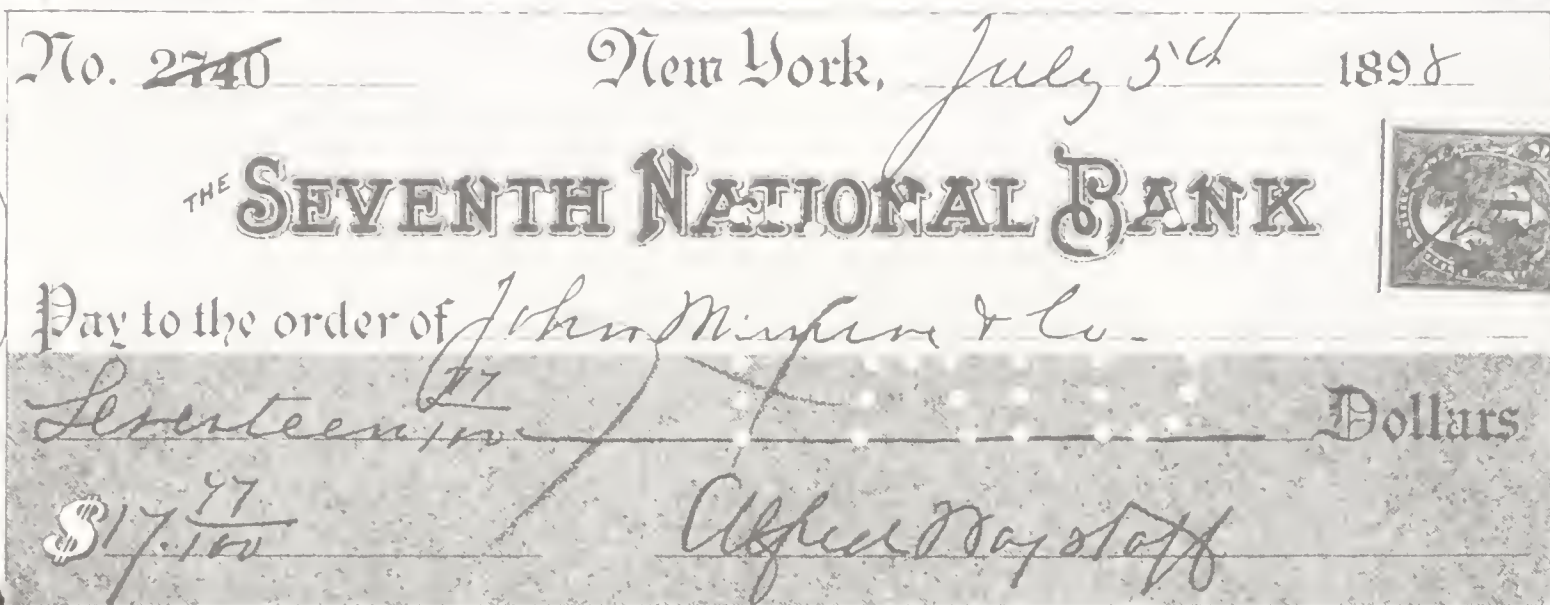 No. 2740 New York, July 5th 1898
THE SEVENTH NATIONAL BANK
Pay to the order of John & Co.
Seventeen 77/100 Dollars
$17.77/100 Alfred Wagstaff